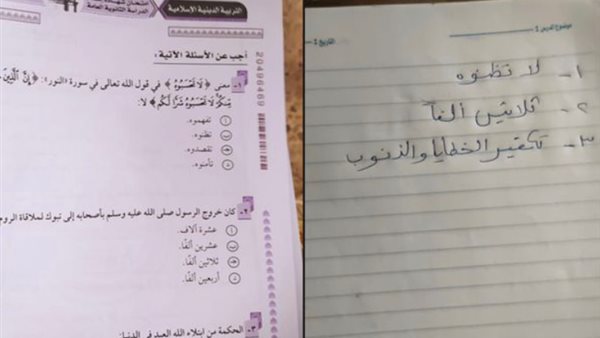 التربية الدينية الإسلامية
امتحان شهادة
الدراسة الثانوية العامة
20496469
أجب عن الأسئلة الآتية:
١- معنى ﴿لَا تَحْسَبُوهُ﴾ في قول الله تعالى في سورة «النور»: ﴿إِنَّ الَّذِينَ
مِنكُمْ لَا تَحْسَبُوهُ شَرًّا لَّكُم﴾ لا:
أ تفهموه.
ب تظنوه.
ج تقصدوه.
د تأمنوه.
٢- كان خروج الرسول صلى الله عليه وسلم بأصحابه إلى تبوك لملاقاة الروم
أ عشرة آلاف.
ب عشرين ألفًا.
ج ثلاثين ألفًا.
د أربعين ألفًا.
٣- الحكمة من ابتلاء الله العبد في الدنيا:
موضوع الدرس :
التاريخ :
١- لا تظنوه
٢- ثلاثين ألفاً
٣- تكفير الخطايا والذنوب